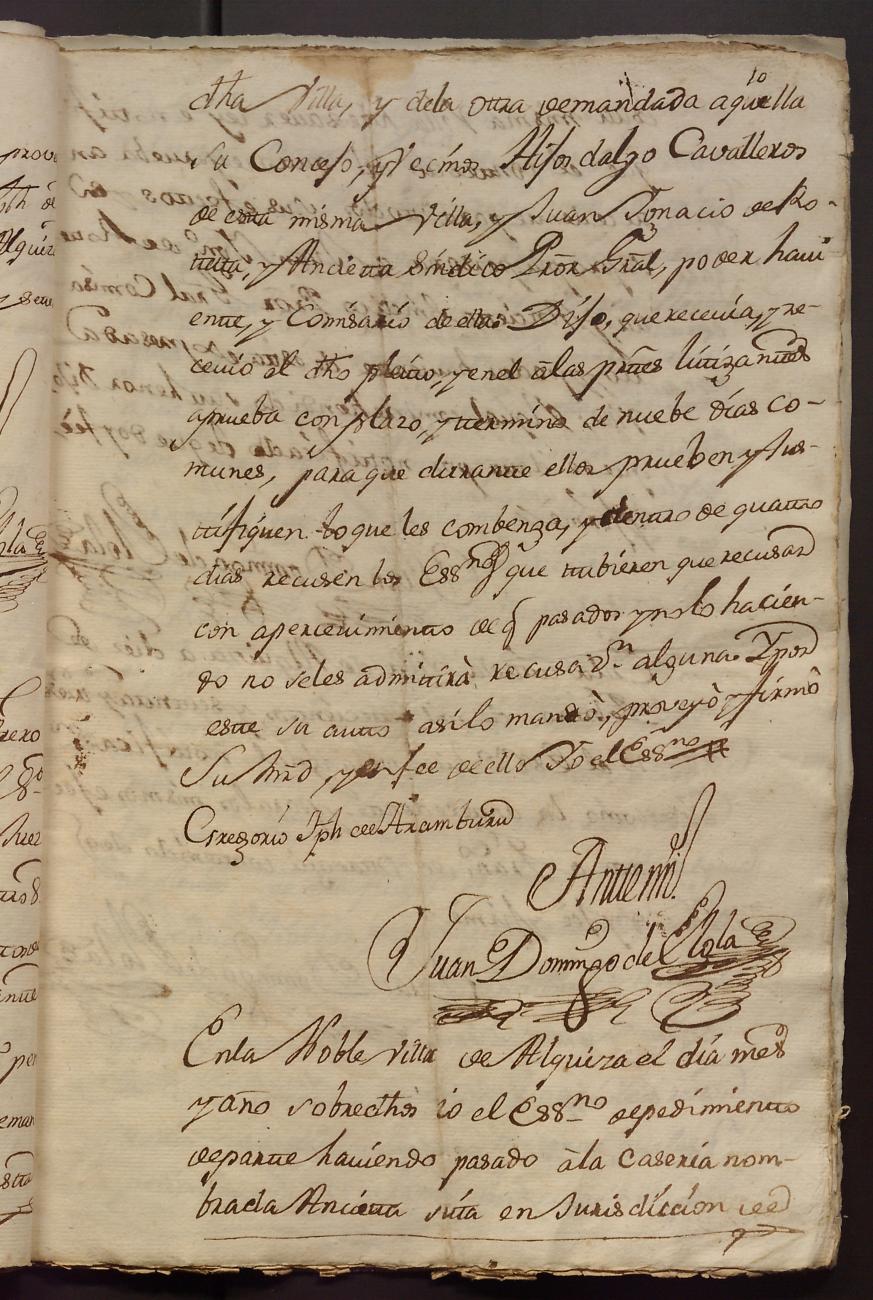 10
dha Villa, y dela otra demandada aquella
su Concejo, y Vecinos Hijos dalgo Cavalleros
de esta misma Villa, y Juan Ygnacio de Ro-
teta, y Ancieta Sindico Pror Gral, poder havi
ente, y Comisario de ellos Dijo, que recevia, y re-
cevio al dho pleito, y en el à las partes litizantes
a prueba con plazo, y termino de nuebe dias co-
munes, para que durante ellos prueben y jus-
tifiquen lo que les combenga, y dentro de quatro
dias recusen los Essnos que tubieren que recusar
con apercevimiento de q pasados y no lo hacien-
do no seles admitirà recusazon alguna. Y por
este su auto asi lo mandò, proveyò, y firmò
Su Mrd, y en fee de ello Yo el Essno
Gregorio Jph de Aramburu
Antemi
Juan Domingo de Elola
Enla Noble Villa de Alquiza el dia mes
y año sobredhos io el Essno de pedimiento
de parte haviendo pasado à la caseria nom-
brada Ancieta sita en Jurisdiccion de